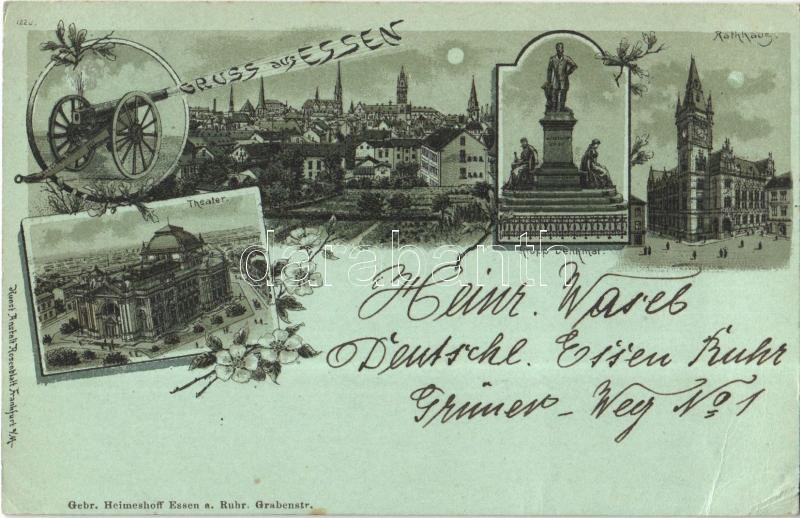 1220.
GRUSS aus ESSEN
Rathhaus.
Theater.
Krupp Denkmal.
darabanth
Heinr. Waseb
Deutschl. Essen Ruhr
Grüner-Weg No 1
Kunst Anstalt Rosenblatt, Frankfurt a/M.
Gebr. Heimeshoff Essen a. Ruhr. Grabenstr.